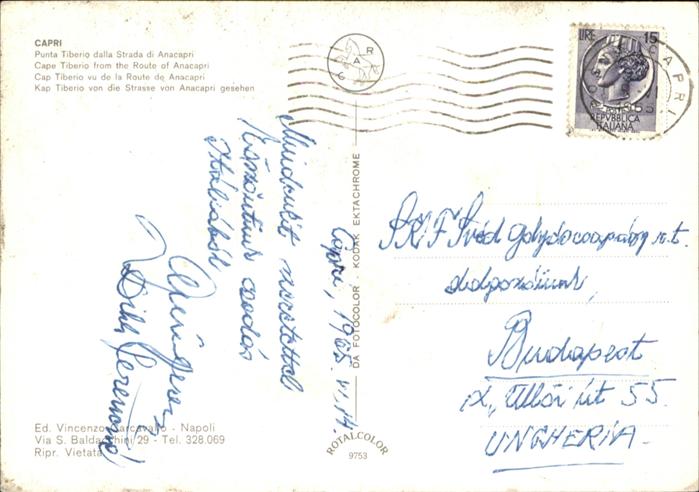 CAPRI
Punta Tiberio dalla Strada di Anacapri
Cape Tiberio from the Route of Anacapri
Cap Tiberio vu de la Route de Anacapri
Kap Tiberio von die Strasse von Anacapri gesehen
CAPRI
LIRE 15
CAPRI
1965
REPVBBLICA
ITALIANA
Mindenkit szeretettel
köszöntünk csodás
Itáliából
Capri, 1965. VI. 14.
DA FOTOCOLOR - KODAK EKTACHROME
SKF Svéd Golyóscsapágy r.t.
Budapest
IX., Üllői út 55.
UNGHERIA.
Ed. Vincenzo Carcavallo - Napoli
Via S. Baldacchini 29 - Tel. 328.069
Ripr. Vietata
ROTALCOLOR
9753